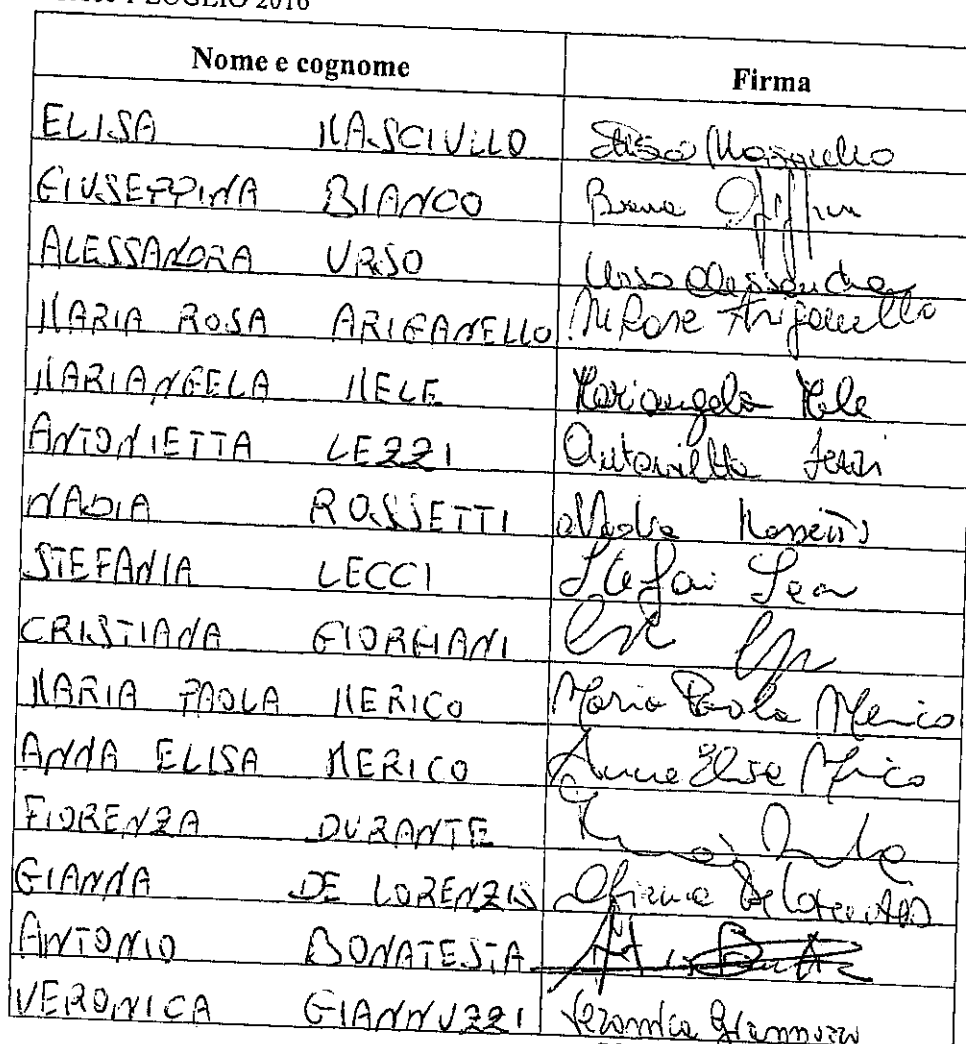 LUGLIO 2016
Nome e cognome Firma
ELISA MASCIULLO Elisa Masciullo
GIUSEPPINA BIANCO
ALESSANDRA URSO Urso Alessandra
MARIA ROSA ARIGANELLO M Rosa Ariganello
MARIANGELA MELE Mariangela Mele
ANTONIETTA LEZZI Antonietta Lezzi
NADIA ROSSETTI Nadia Rossetti
STEFANIA LECCI
CRISTIANA GIORGIANI
MARIA PAOLA MERICO Maria Paola Merico
ANNA ELISA MERICO Anna Elisa Merico
FIORENZA DURANTE
GIANNA DE LORENZIS Gianna De Lorenzis
ANTONIO BONATESTA
VERONICA GIANNUZZI Veronica Giannuzzi